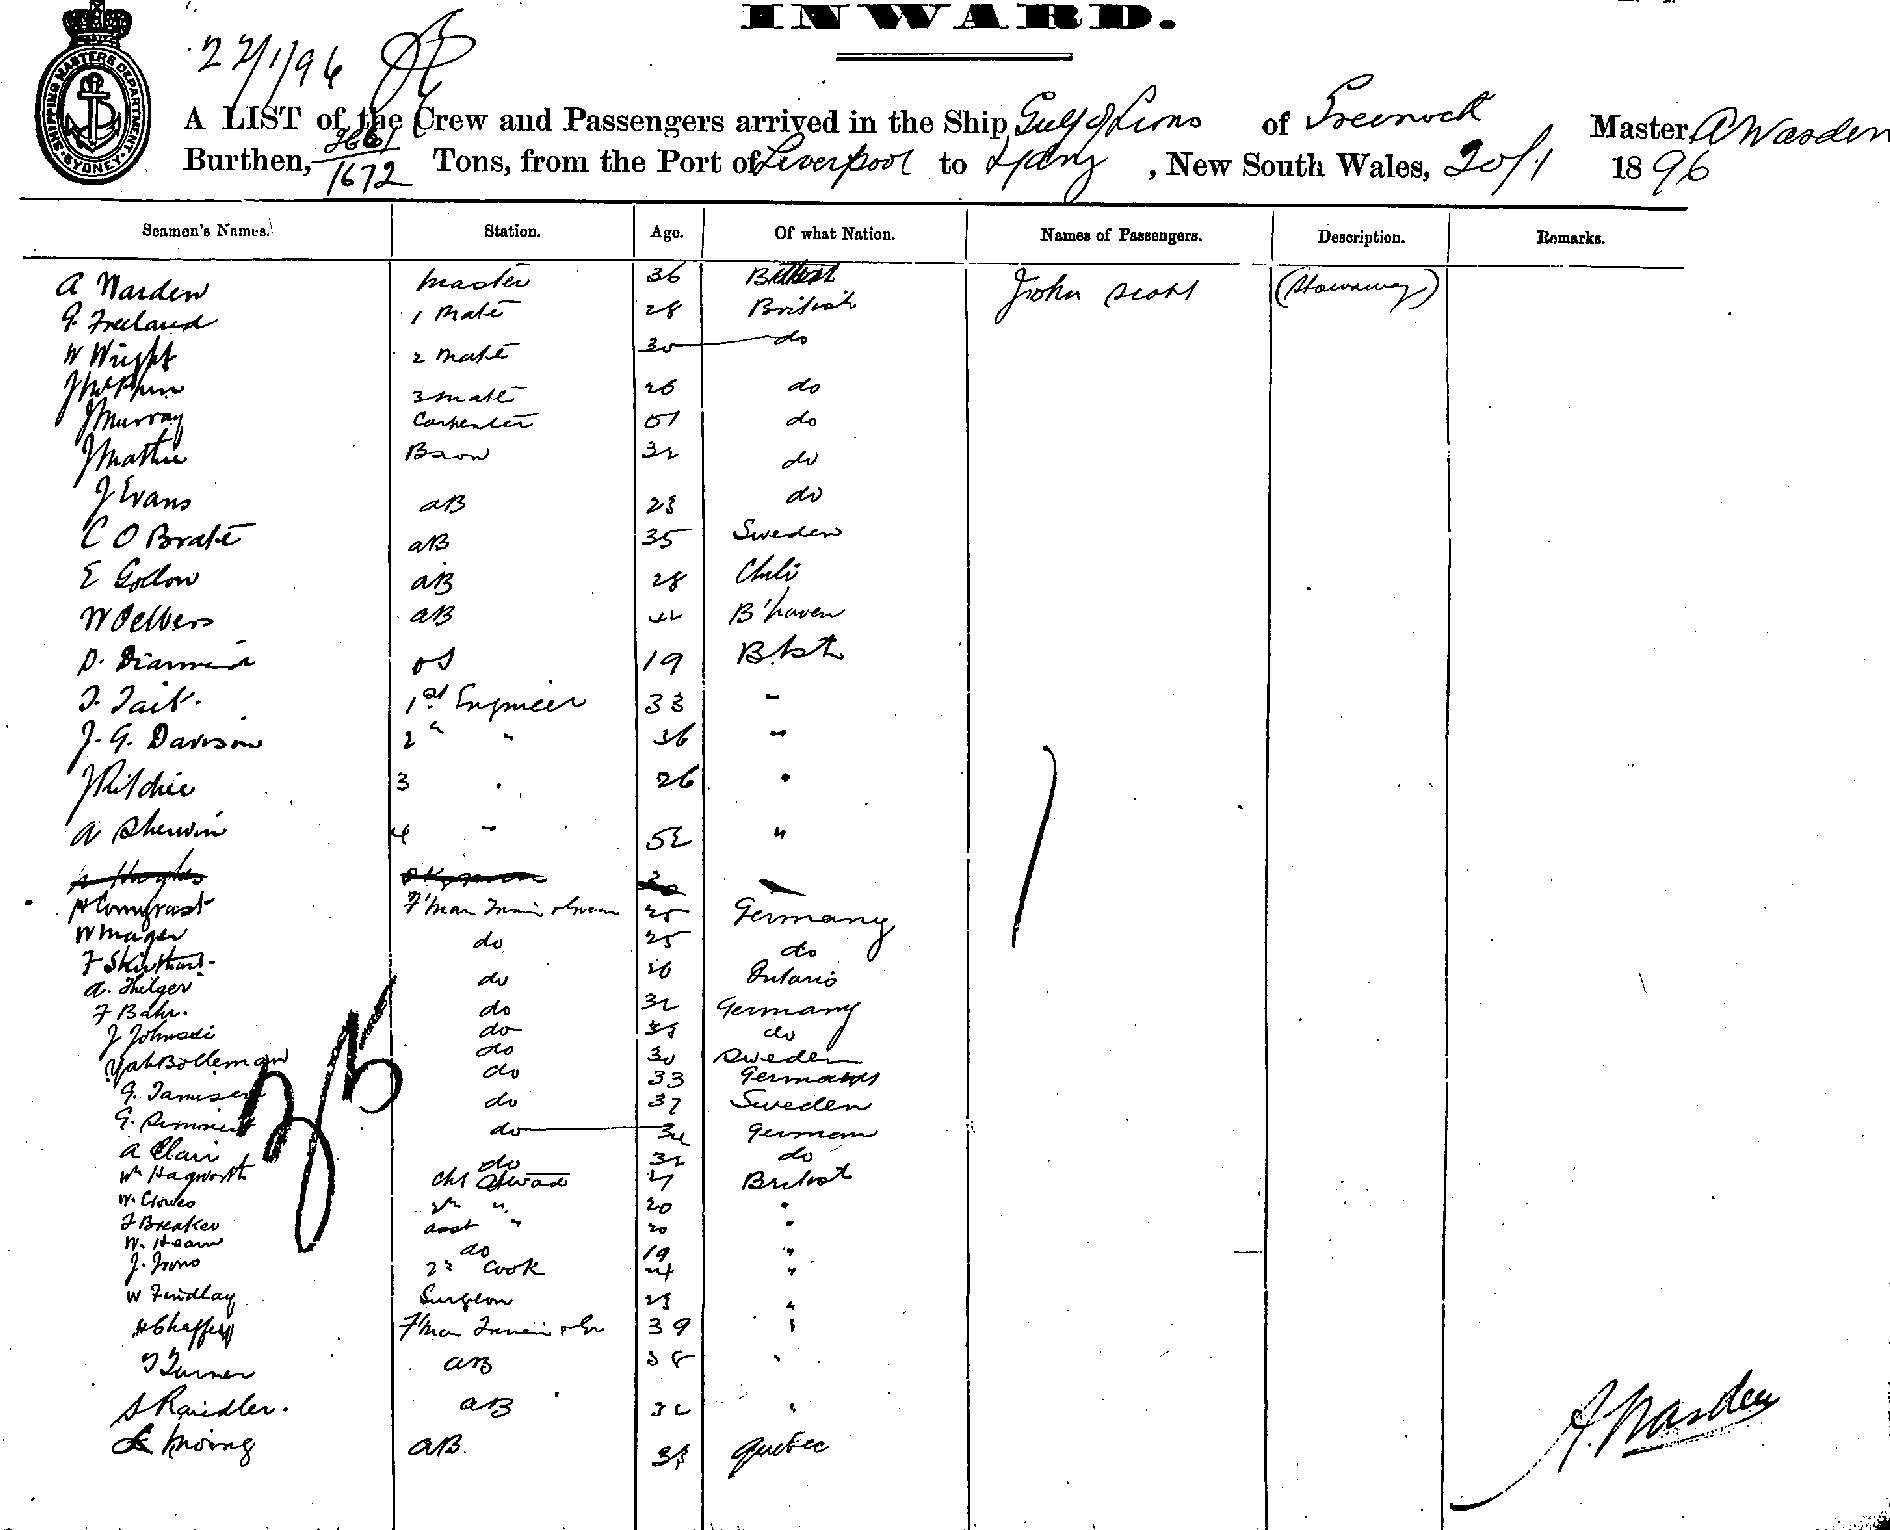 INWARD.
22/1/96
SHIPPING MASTERS DEPARTMENT SYDNEY
A LIST of the Crew and Passengers arrived in the Ship Gulf of Lions of Greenock Master A Warden
Burthen, 1672 Tons, from the Port of Liverpool to Sydney, New South Wales, 20/1 1896
Seamen's Names. Station. Age. Of what Nation. Names of Passengers. Description. Remarks.
A Warden master 36 British John Scott (Stowaway)
G. Freeland 1 Mate 28 British
W Wright 2 Mate 30 do
3 mate 26 do
J Murray Carpenter 51 do
J Mathie Bosun 32 do
J Evans AB 28 do
C O Brate AB 35 Sweden
E Gollon AB 28 Chili
W Oelbers AB B'haven
D. Diarmid OS 19 Btsh
T. Tait. 1st Engineer 33 -
J. G. Davison 2 " " 36 "
J Ritchie 3 . 26 "
A Sherwin 4 - 52 "
A Hughes
F'man Trim 25 Germany
W Mager do 25 do
do 26 Ontario
A. Hilger do 32 Germany
F Bahr. do do
J Johnson do 30 Sweden
Bolleman do 33 German
G. Jamisen do 37 Sweden
G. do German
A Clair do 32 do
Wm Hagworth Ch Stwad 27 British
W. Clowes 2n " 20 "
F Breaker asst " 20 "
W. Hearn do 19 "
J. Irons 2d Cook 24 "
W Findlay Surgeon 28 "
H Chaffey F'man 39 "
T Turner AB 38 "
S Raidler. AB 32 "
Moing AB. 38 Quebec
A. Warden